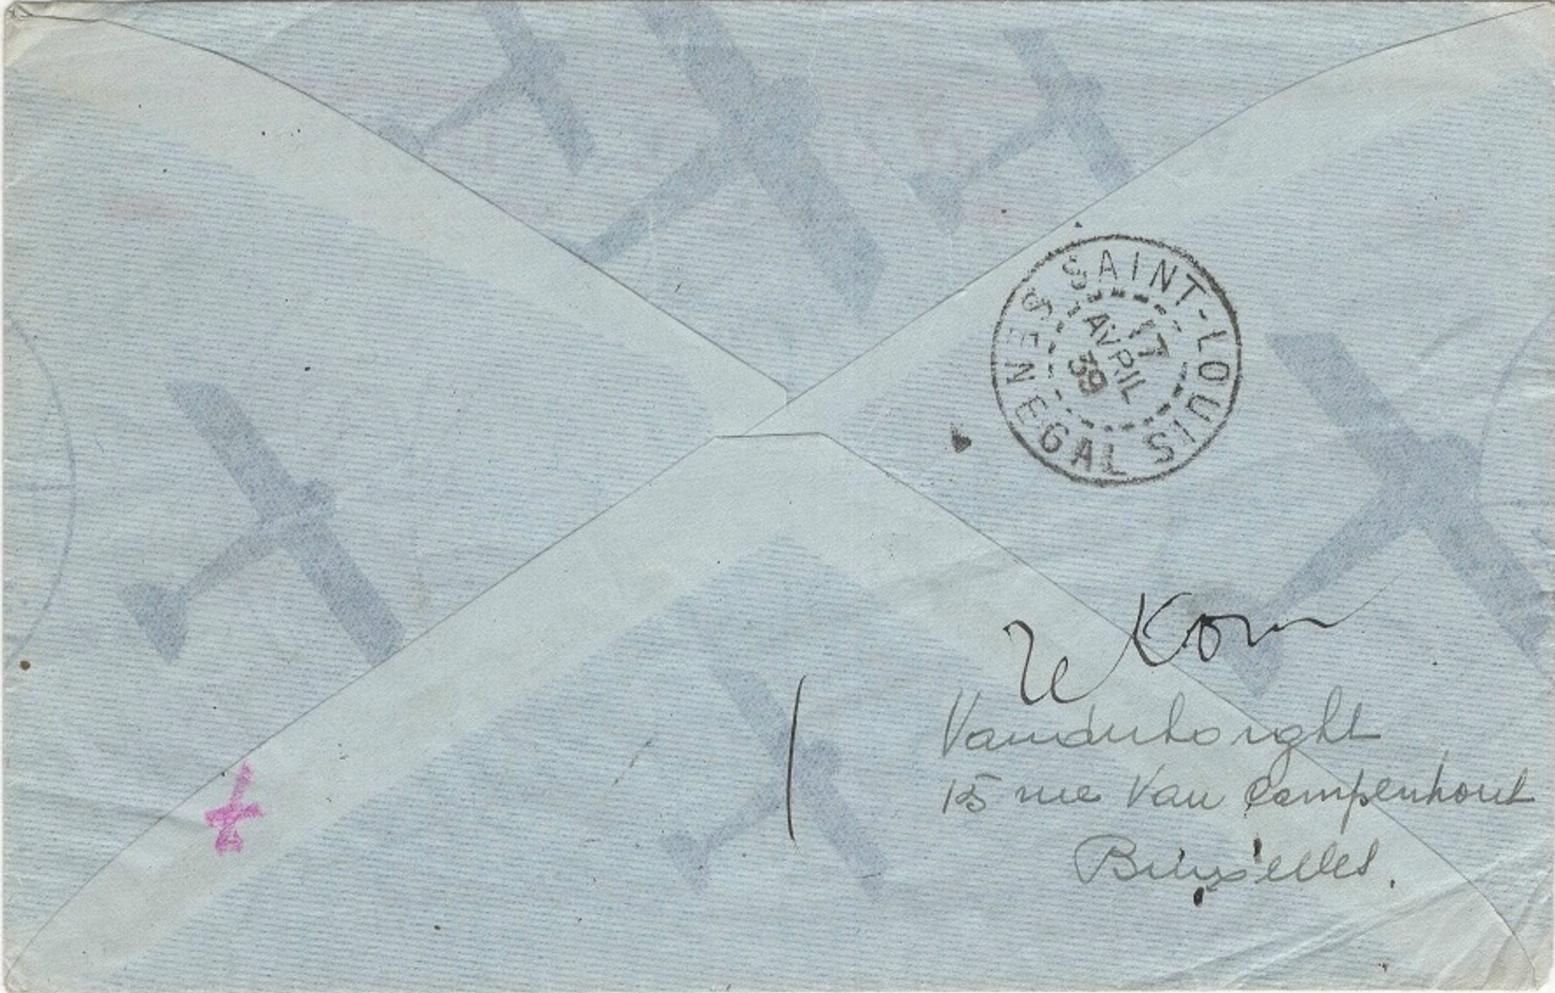 SAINT-LOUIS
SENEGAL
17
AVRIL
39
Vanderborght
15 rue Van Campenhout
Bruxelles.